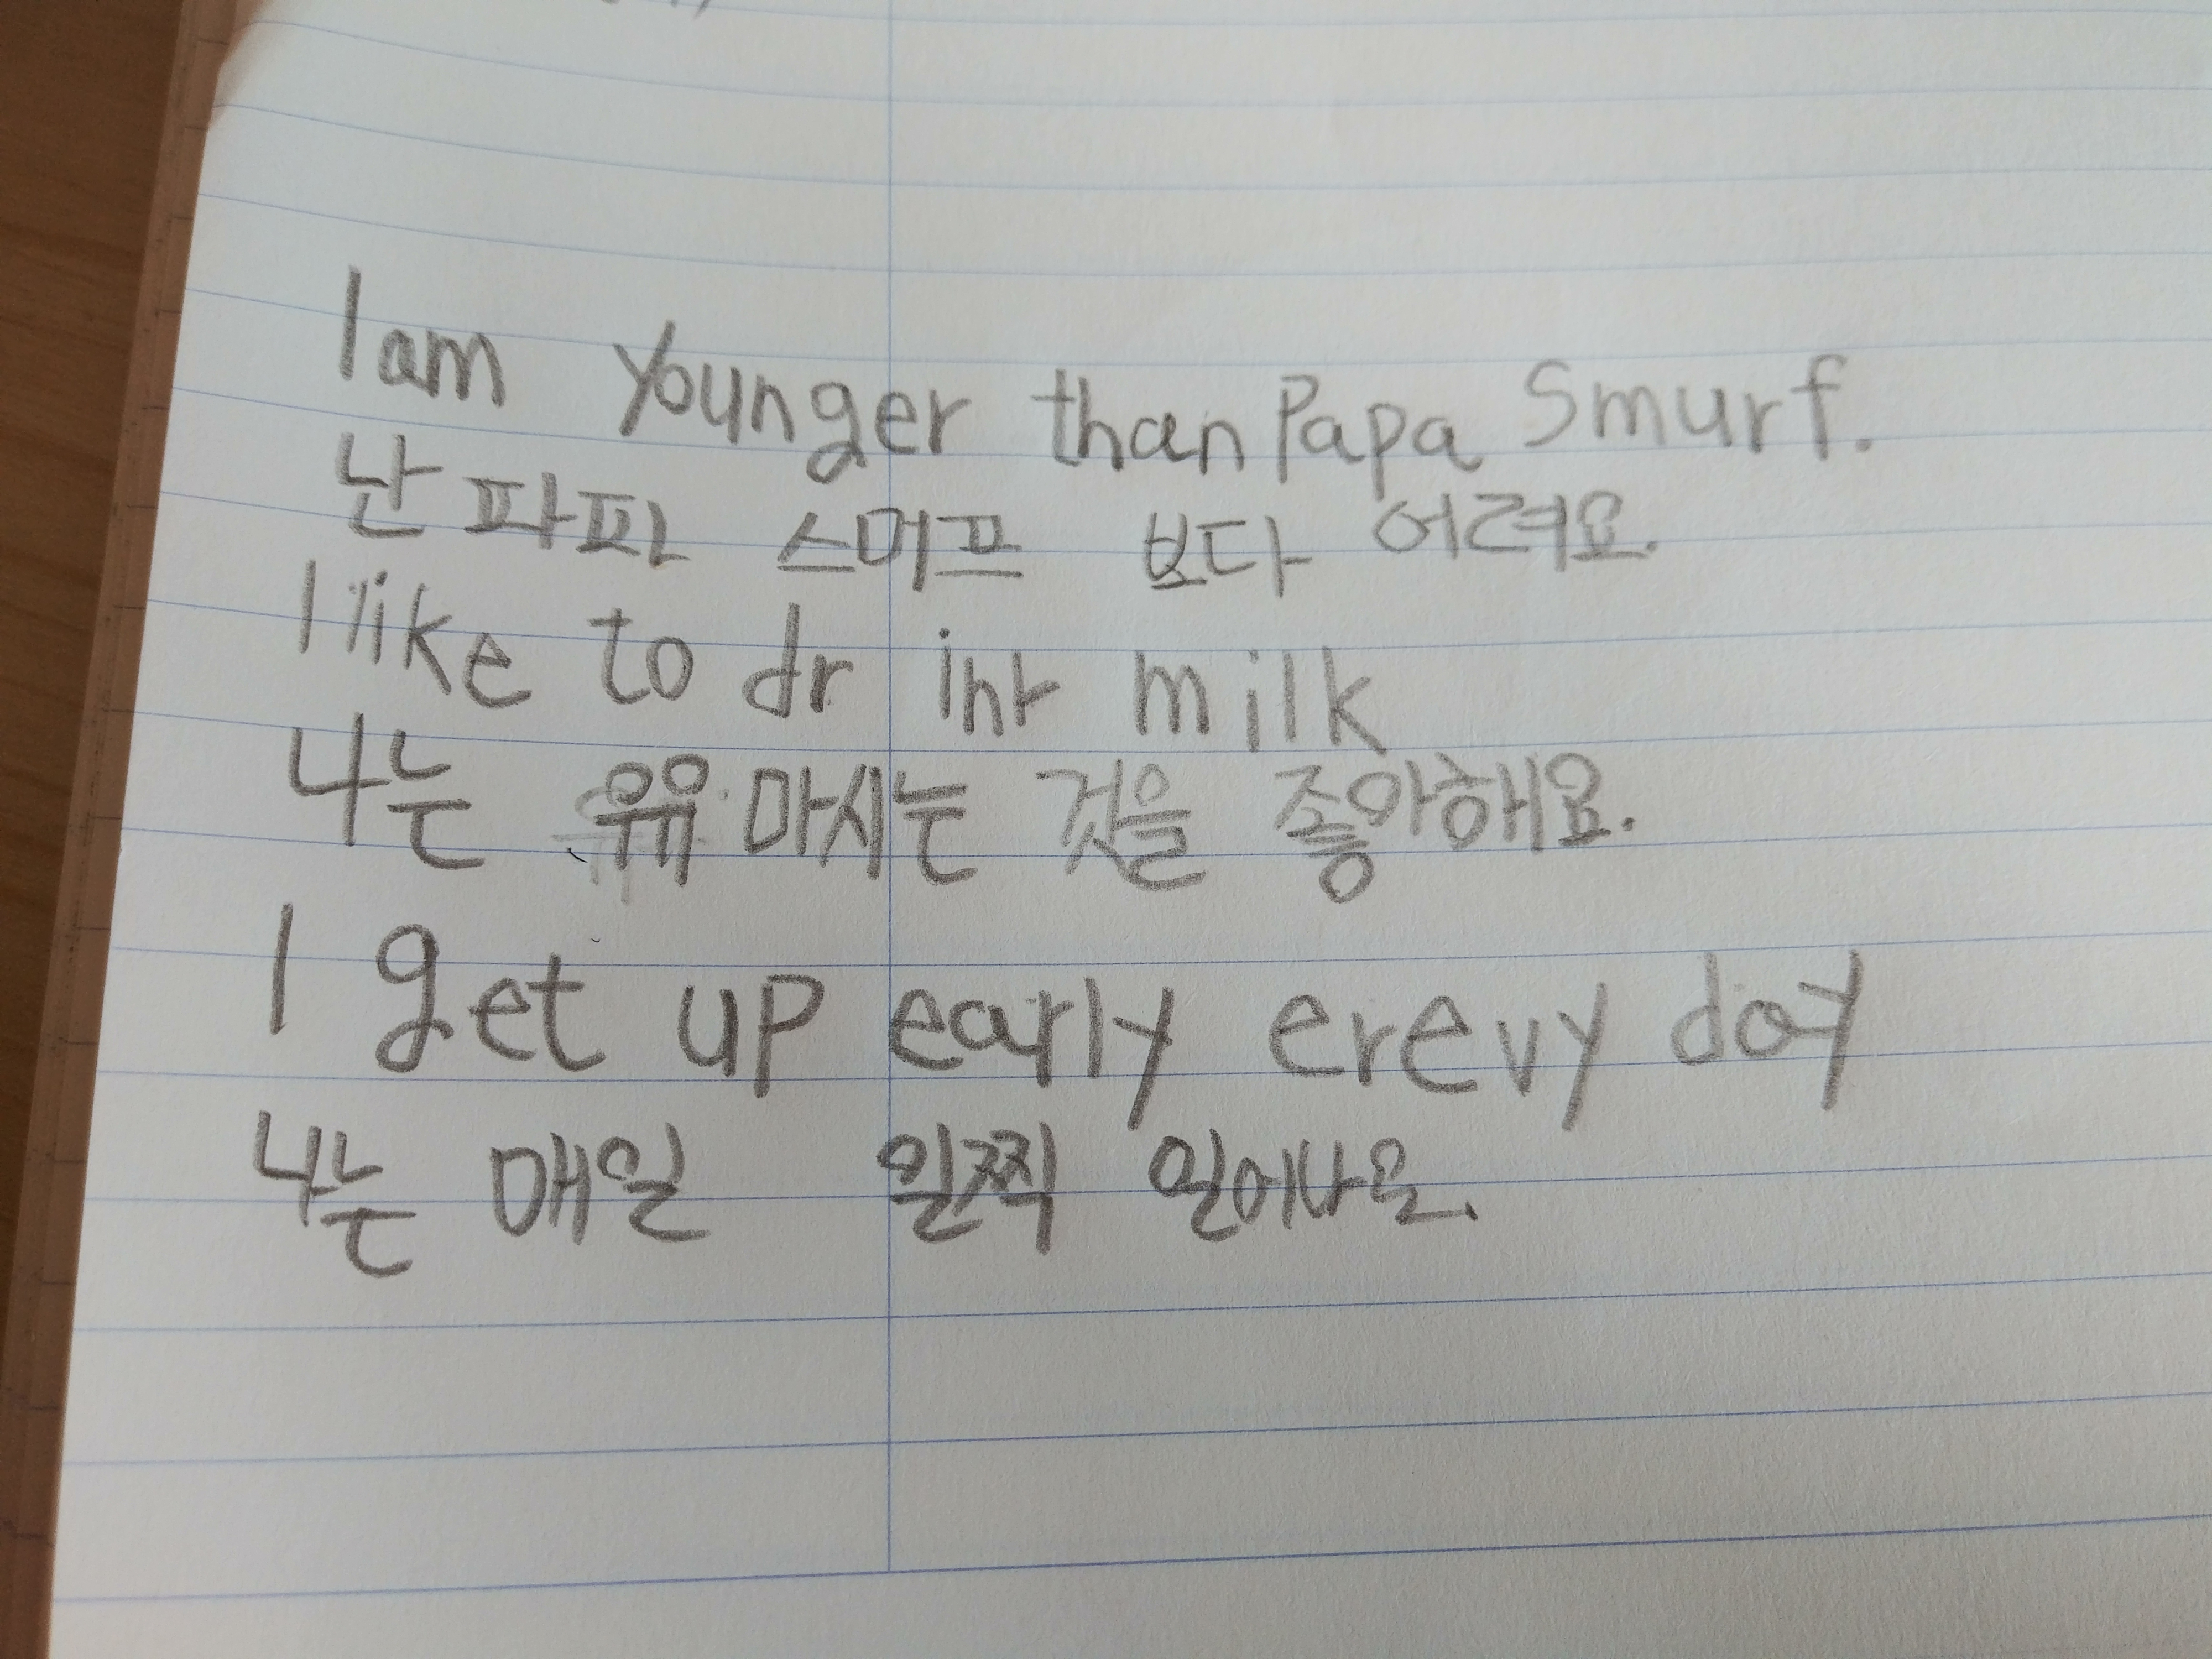 I am younger than Papa Smurf.
난 파파 스머프 보다 어려요.
I like to drink milk
나는 우유 마시는 것을 좋아해요.
I get up early erevy day
나는 매일 일찍 일어나요.